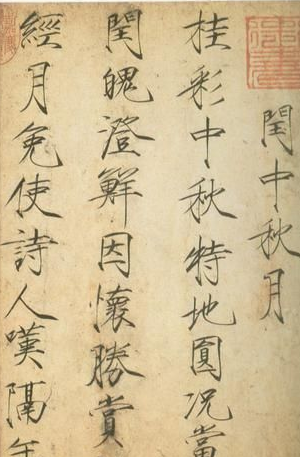 閏中秋月
桂彩中秋特地圓況當
閏魄澄鮮因懷勝賞
經月免使詩人嘆隔年